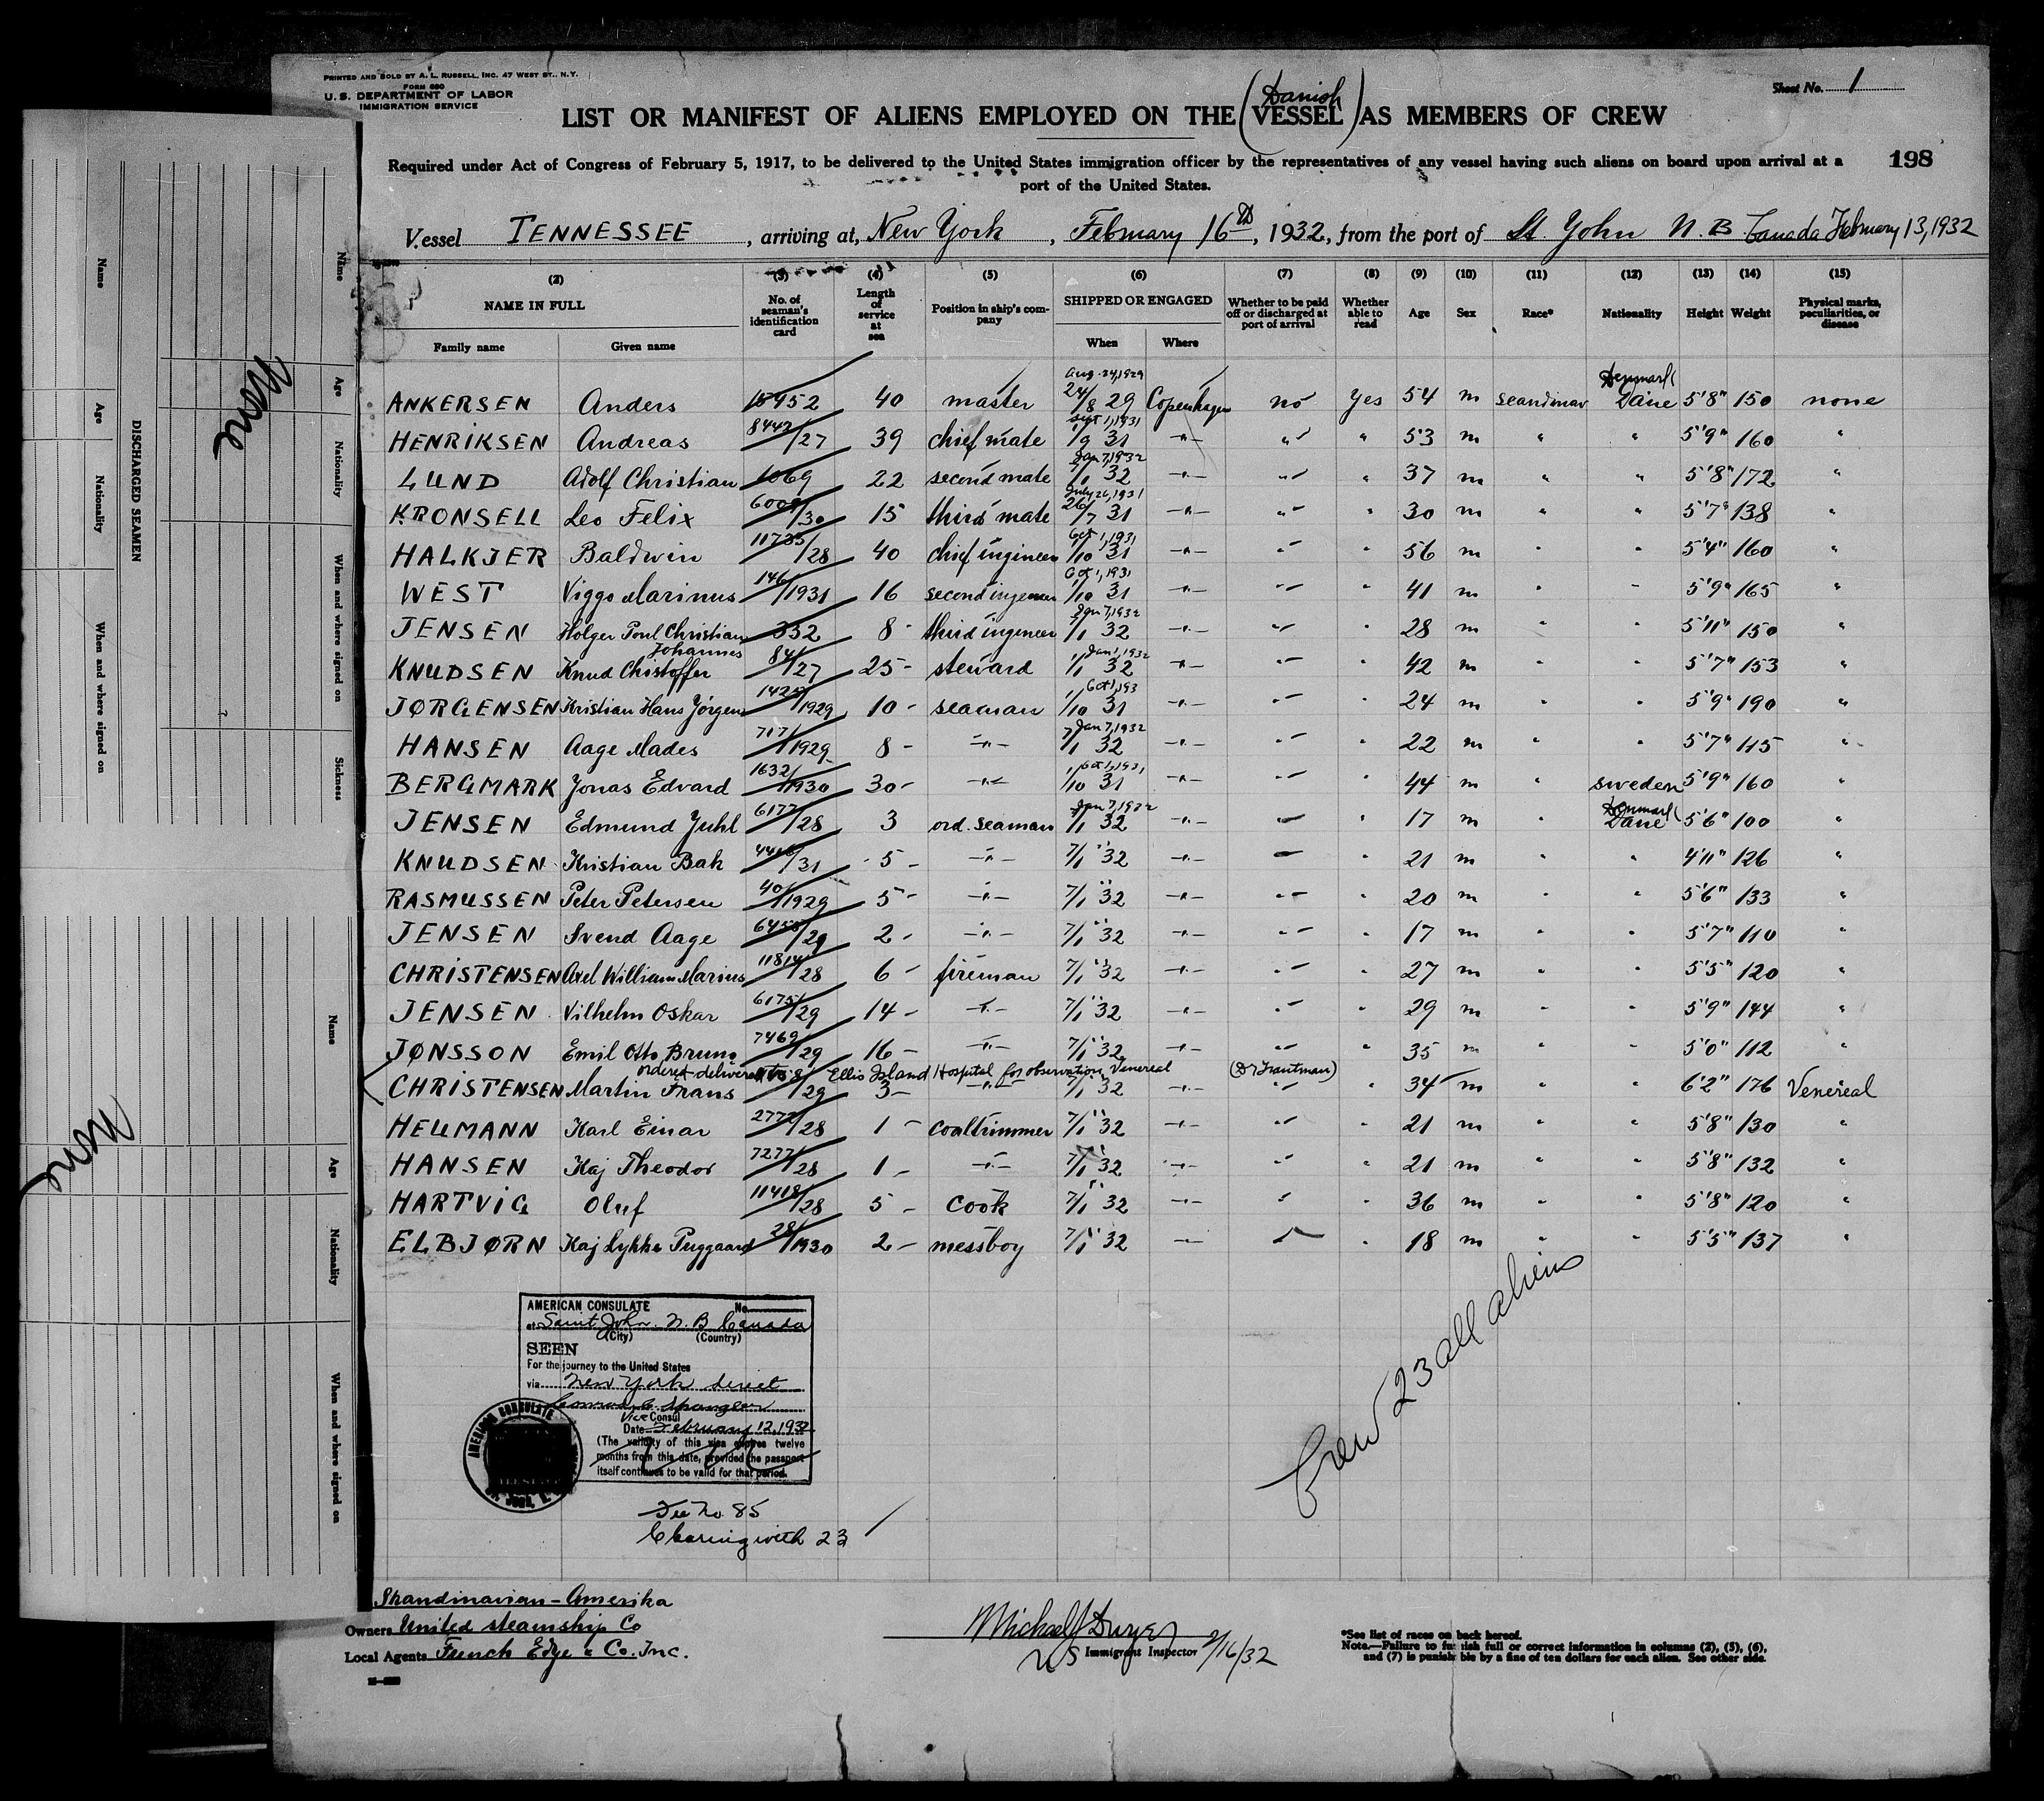 PRINTED AND SOLD BY A. L. RUSSELL, INC. 47 WEST ST., N.Y.
FORM 680
U. S. DEPARTMENT OF LABOR
IMMIGRATION SERVICE
Sheet No. 1
Danish
LIST OR MANIFEST OF ALIENS EMPLOYED ON THE (VESSEL) AS MEMBERS OF CREW
Required under Act of Congress of February 5, 1917, to be delivered to the United States immigration officer by the representatives of any vessel having such aliens on board upon arrival at a
port of the United States.
198
Vessel TENNESSEE, arriving at, New York, February 16th, 1932, from the port of St. John N. B. Canada February 13, 1932
(2) (3) (4) (5) (6) (7) (8) (9) (10) (11) (12) (13) (14) (15)
NAME IN FULL
Family name Given name
No. of seaman's identification card
Length of service at sea
Position in ship's company
SHIPPED OR ENGAGED
When Where
Whether to be paid off or discharged at port of arrival
Whether able to read
Age Sex Race* Nationality Height Weight
Physical marks, peculiarities, or disease
Aug. 24, 1929 Denmark
ANKERSEN Anders 15952 40 master 24/8 29 Copenhagen no Yes 54 m Scandinav Dane 5'8" 150 none
Sept 1, 1931
HENRIKSEN Andreas 8442/27 39 chief mate 1/9 31 -"- "" " 53 m " " 5'9" 160 "
Jan 7, 1932
LUND Adolf Christian 1069 22 second mate 7/1 32 -"- "" " 37 m " " 5'8" 172 "
July 26, 1931
KRONSELL Leo Felix /30 15 third mate 26/7 31 -"- "" " 30 m " " 5'7" 138 "
Oct 1, 1931
HALKJER Baldwin 11735/28 40 chief ingineer 1/10 31 -"- "" " 56 m " " 5'4" 160 "
Oct 1, 1931
WEST Viggo Marinus 146/1931 16 second ingeneer 1/10 31 -"- "" " 41 m " " 5'9" 165 "
Jan 7, 1932
JENSEN Holger Poul Christian 332 8 - third ingeneer 7/1 32 -"- "" " 28 m " " 5'11" 150 "
Johannes Jan 1, 1932
KNUDSEN Knud Chistoffer 84/27 25 - steward 1/1 32 -"- "" " 42 m " " 5'7" 153 "
Oct 1, 193
JØRGENSEN Kristian Hans Jörgen 1425/1929 10 - seaman 1/10 31 -"- "" " 24 m " " 5'9" 190 "
Jan 7, 1932
HANSEN Aage Mades 717/1929 8 - -"- 7/1 32 -"- "" " 22 m " " 5'7" 115 "
Oct 1, 1931
BERGMARK Jonas Edvard 1632/1930 30 - -"- 1/10 31 -"- "" " 44 m " sweden 5'9" 160 "
Jan 7, 1932 Denmark
JENSEN Edmund Juhl 6177/28 3 ord. seaman 7/1 32 -"- "" " 17 m " Dane 5'6" 100 "
KNUDSEN Kristian Bak /31 5 - -"- 7/1 32 -"- "" " 21 m " " 4'11" 126 "
RASMUSSEN Peter Petersen 40/1929 5 - -"- 7/1 32 -"- "" " 20 m " " 5'6" 133 "
JENSEN Svend Aage 6455/29 2 - -"- 7/1 32 -"- "" " 17 m " " 5'7" 110 "
CHRISTENSEN Axel William Marius 11814/28 6 - fireman 7/1 32 -"- "" " 27 m " " 5'5" 120 "
JENSEN Vilhelm Oskar 6175/29 14 - -"- 7/1 32 -"- "" " 29 m " " 5'9" 144 "
JØNSSON Emil Otto Bruno 7469/29 16 - -"- 7/1 32 -"- "" " 35 m " " 5'0" 112 "
ordered delivered to Ellis Island Hospital for observation Venereal (Dr Trautman)
CHRISTENSEN Martin Frans /29 3 - -"- 7/1 32 -"- "" " 34 m " " 6'2" 176 Venereal
HELLMANN Karl Einar 2777/28 1 - coaltrimmer 7/1 32 -"- "" " 21 m " " 5'8" 130 "
HANSEN Kaj Theodor 7277/28 1 - -"- 7/1 32 -"- "" " 21 m " " 5'8" 132 "
HARTVIG Oluf 11418/28 5 - cook 7/1 32 -"- " " 36 m " " 5'8" 120 "
ELBJØRN Kaj Lykke Puggaard 28/1930 2 - messboy 7/1 32 -"- " " 18 m " " 5'5" 137 "
Crew 23 all aliens
AMERICAN CONSULATE No.
at Saint John. N. B Canada
(City) (Country)
SEEN
For the journey to the United States
via New York direct
Vice Consul
Date February 12, 1932
(The validity of this visa expires twelve
months from this date, provided the passport
itself continues to be valid for that period.
AMERICAN CONSULATE
Fee No 85
Clearing with 23
Skandinavian-Amerika
Owners United steamship Co
Local Agents Funch Edye & Co. Inc.
Michael J Dwyer
US Immigrant Inspector 2/16/32
*See list of races on back hereof.
Note.—Failure to furnish full or correct information in columns (2), (5), (6),
and (7) is punishable by a fine of ten dollars for each alien. See other side.
DISCHARGED SEAMEN
Name Age Nationality When and where signed on
Name Age Nationality When and where signed on Sickness
None
Name Age Nationality When and where signed on
None